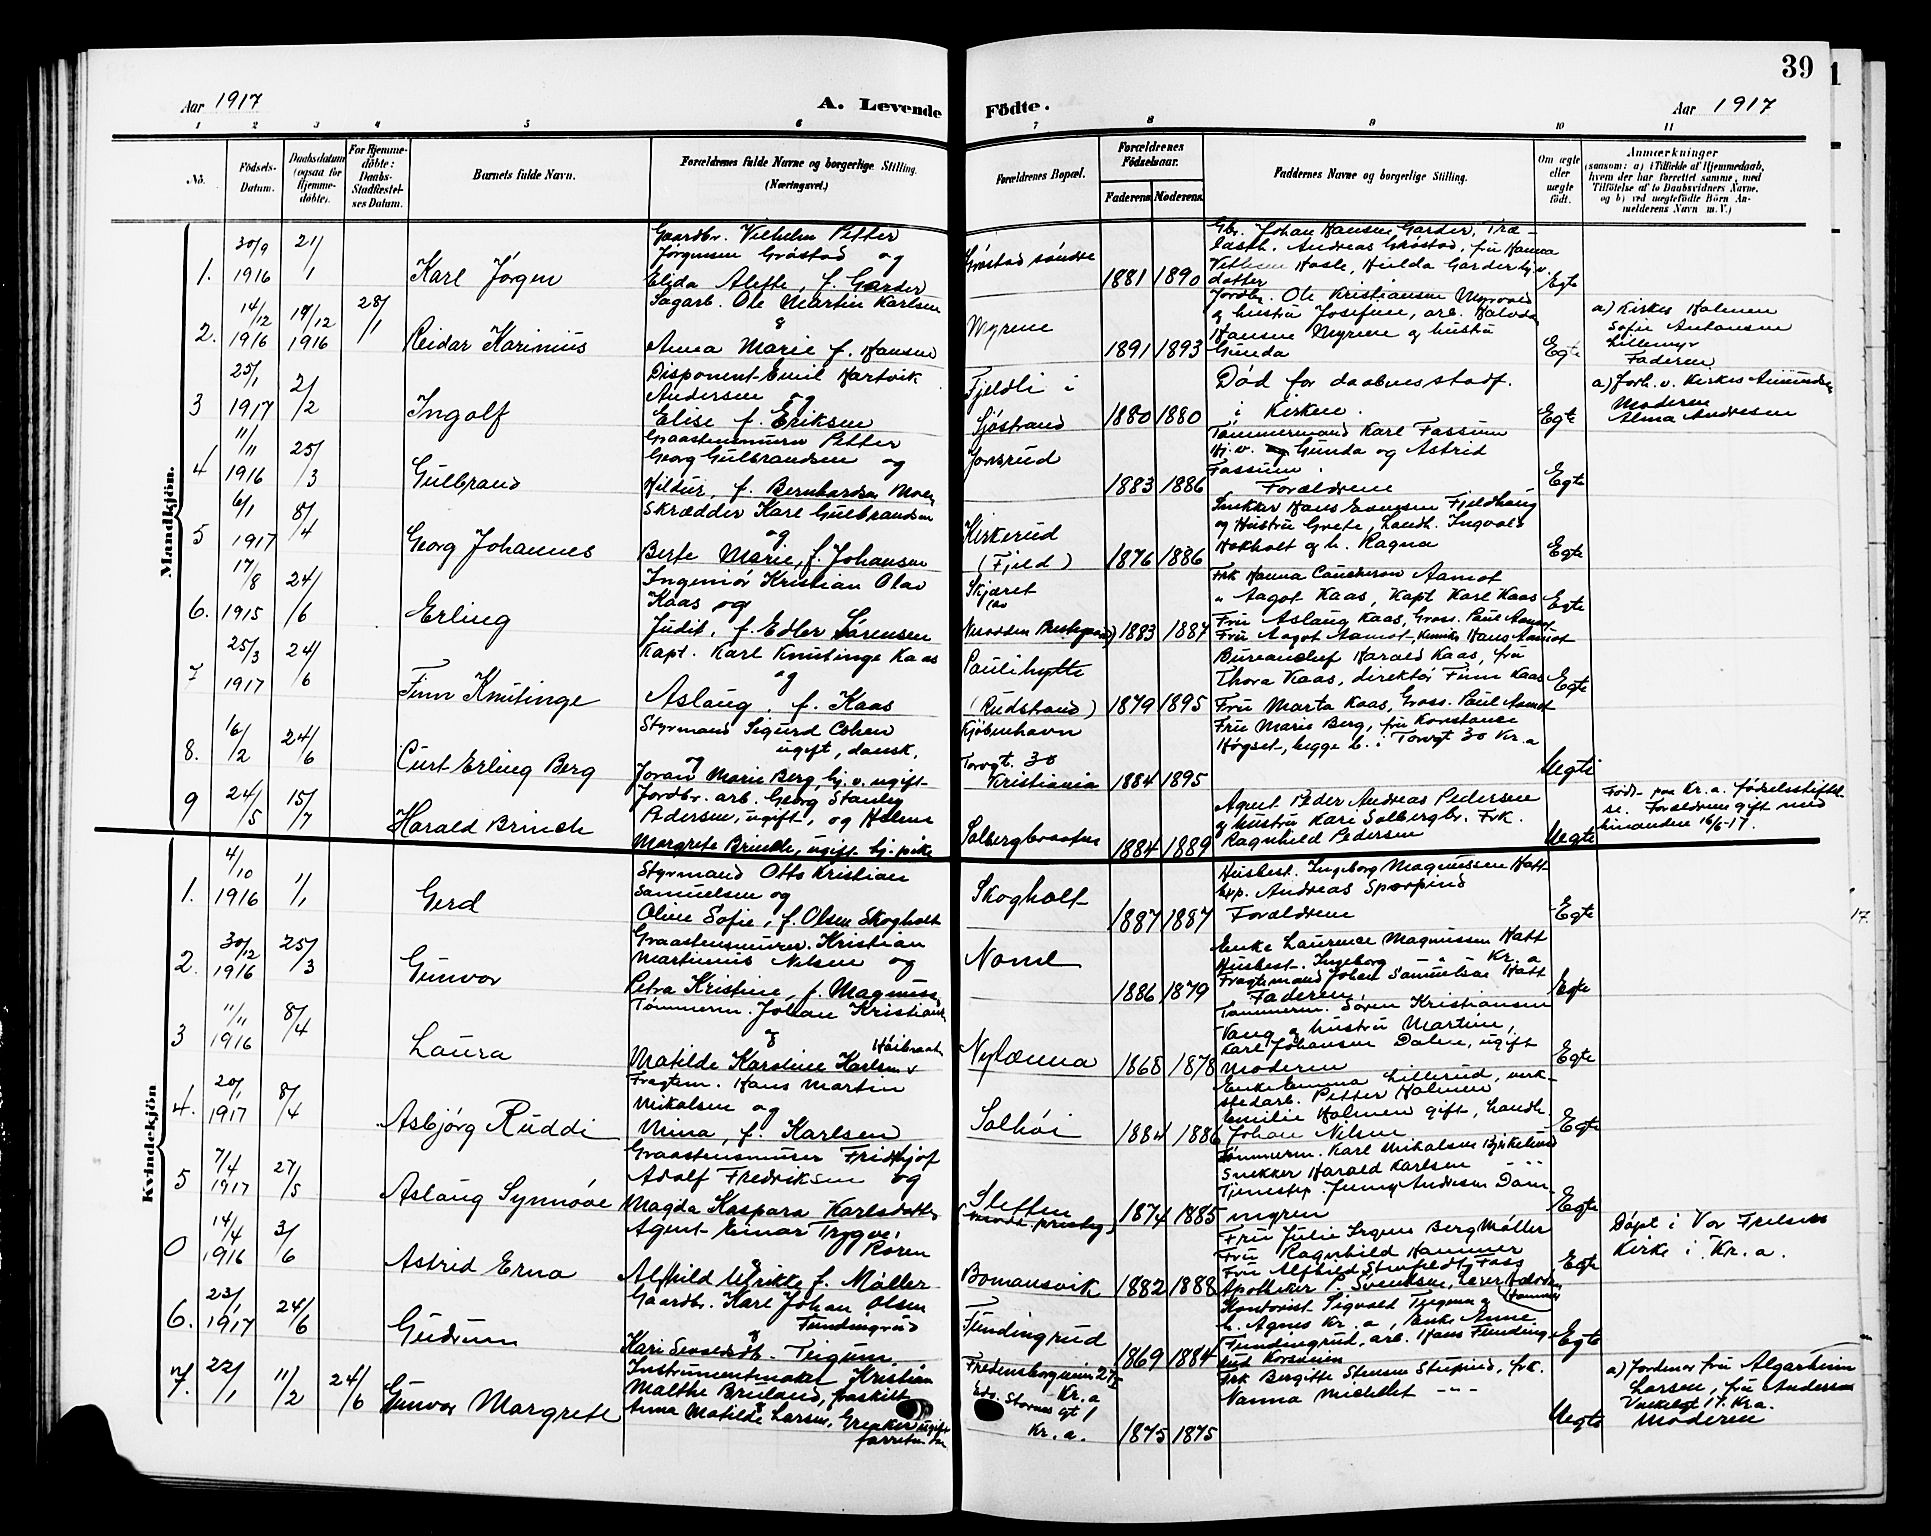 39
Aar 1917
A. Levende Födte.
Aar 1917
1 2 3 4 5 6 7 8 9 10 11
No.
Fødsels-Datum.
Daabsdatum (ogsaa for Hjemme-døbte).
For Hjemme-døbte: Daabs-Stadfæstel-ses Datum.
Barnets fulde Navn.
Forældrenes fulde Navne og borgerlige Stilling. (Næringsvei.)
Forældrenes Bopæl.
Forældrenes Fødselsaar.
Faderens Moderens
Faddernes Navne og borgerlige Stilling.
Om ægte eller uægte født.
Anmærkninger
(saasom: a) i Tilfælde af Hjemmedaab, hvem der har forrettet samme, med Tilføielse af to Daabsvidners Navne, og b) ved uægtefødte Børn Anmelderens Navn m. V.)
Mandkjön.
1. 30/9 1916 21/1 Karl Jørgen
Gaardbr. Vilhelm Petter
Jørgensen Grøstad og
Elida Alette, f. Garder
Grøstad søndre 1881 1890
Gbr. Johan Hansen Garder, Træ-
lasth. Andreas Grøstad, fru Hanna
Hasle, Hulda Garder hj.v.
datter
Egte
2. 14/12 1916 19/12 1916 28/1 Reidar Karinius
Sagarb. Ole Martin Karlsen
&
Anna Marie f. Hansen
Myrene 1891 1893
Jordbr. Ole Kristiansen Myrvold
og hustru Josefine, arb. Halvdan
Hansen Myrene og hustru
Gunda
Egte
a) Kirkes Holmen
Sofie Antonsen
Lillemyr
Faderen
3 25/1 1917 2/2 Ingolf
Disponent Emil Hartvik
Andersen og
Elise f. Eriksen
Fjeldli i
Sjøstrand 1880 1880
Død før daabens stadf.
i Kirken.
Egte
a) Jorh. v. Kirkes Amundsen
Moderen
Alma Andresen
4 11/11 1916 25/3 Gulbrand
Graastensmurer Petter
Georg Gulbrandsen og
Hildur, f. Bernhardsen Moen
Gonsrud 1883 1886
Tømmermand Karl Fassum
Hj.v. Gunda og Astrid
Fassum.
Forældrene
Egte
5 6/1 1917 8/4 Georg Johannes
Skrædder Karl Gulbrandsen
og
Berte Marie, f. Johansen
Kirkerud
(Fjeld) 1876 1886
Snekker Hans Evensen Fjeldhaug
og Hustru Grete, Landh. Ingvald
Hokholt og h. Ragna
Egte
6. 17/8 1915 24/6 Erling
Ingeniør Kristian Olav
Kaas og
Judit, f. Edler Sørensen
Skjæret
Nesodden Prestegjeld) 1883 1887
Frk Hanna Aamot
" Aagot Kaas, Kapt Karl Kaas
Fru Aslaug Kaas, Gross. Paul Aamot
Fru Aagot Aamot, Hans Aamot
Egte
7 25/3 1917 24/6 Finn Knutinge
Kapt. Karl Knutinge Kaas
og
Aslaug, f. Kaas
Paulihytte
(Rudstrand) 1879 1895
Bureauchef Harald Kaas, fru
Thora Kaas, direktør Finn Kaas
Fru Marta Kaas, Gross. Paul Aamot
Egte
8. 16/2 24/6 Curt Erling Berg
Styrmand Sigurd Cohen
ugift, dansk,
og
Joran Marie Berg, hj.v. ugift
Kjøbenhavn
Torvgt. 30
Kristiania 1884 1895
Fru Marie Berg, fru Konstance
Høgset, begge b. i Torvgt 30 Kr.a
Uegte
9 24/5 15/7 Harald Brinch
Jordbr. arb. Georg Stanley
Pedersen, ugift, og Helene
Margrete Brinch, ugift hj. pike
Solbergbraaten 1884 1889
Agent Peder Andreas Pedersen
og hustru Kari Solbergbr. Frk.
Ragnhild Pedersen
Uegte
Født paa Kr.a. fødselsstiftel-
se. Forældrene gift med
hinanden 16/6-17.
Kvindekjön
1. 4/10 1916 1/1 Gerd
Styrmand Otto Kristian
Samuelsen og
Oline Sofie, f. Olsen Skogholt
Skogholt 1887 1887
Husbest. Ingeborg Magnussen Hatt
Exp. Andreas Sporpind
Forældrene
Egte
2. 30/12 1916 25/3 Gunvor
Graastensmurer. Kristian
Martinius Nilsen og
Petra Kristine, f. Magnuss.
Nome 1886 1879
Enke Laurence Magnussen Hatt
Husbest. Ingeborg — " — Kr.a
Fragtemand Johan Samuelsen Hatt
Faderen.
Egte
3 11/11 1916 8/4 Laura
Tømmerm. Johan Kristians.
og Høibraaten
Matilde Karoline Karlsen
Nylænna 1868 1878
Tømmerm. Søren Kristiansen
Vang og hustru Martine,
Karl Johansen Dalen, ugift
Moderen
Egte
4. 20/1 1917 8/4 Asbjørg Ruddi
Fragtem. Hans Martin
Nikolsen og
Nina, f. Karlsen
Solhøi 1884 1886
Enke Emma Lillerud, verk-
stedarb. Petter Holmen
Emilie Holmen gift, Landh.
Johan Nilsen
Egte
5 7/4 1917 27/5 Aslaug Synnøve
Graastensmurer Fridtjof
Adolf Fredriksen og
Magda Kaspara Karlsdatter
Sletten 1874 1885
Tømmerm. Karl Mikalsen Bjerkelund
Snekker Harald Karlsen
Tjenestep. Jenny Andresen Døm-
myren
Egte
0 14/4 1916 3/6 Astrid Erna
Agent Einar Trygve
Roren
&
Alfhild Ulrikke f. Møller
Bomansvik 1882 1888
Fru Julie Berg Møller
Fru Ragnhild Hammer
Fru Alfhild Foss
Apotheker P. Svendsen,
Hammer
Egte
Døpt i Vor Frelsers
Kirke i Kr.a.
6. 23/1 1917 24/6 Gudrun
Gaardbr. Karl Johan Olsen
Fundingrud
&
Kari Sevaldsdt. Tugum.
Fundingrud 1869 1884
Kontorist Sigvald Tugum og
h. Agnes Kr.a, Enke Anne
Fundingrud, arb. Hans Funding-
rud Korsveien
Egte
7. 22/1 11/2 24/6 Gunvor Margrete
Instrumentmaker Kristian
Malthe Bruland, fraskilt
&
Anna Matilde Larsen, ugift
Fredensborgveien
Kr.a
Edv. Storms gt 1
Kr.a. 1875 1875
Frk Bergitte Stensen Stupind, frk.
Nanna Michelet - " -
Uegte
a) Jordmor fru Algarheim
Larsen, fru Anderssen
17. Kr.a.
Moderen
17.